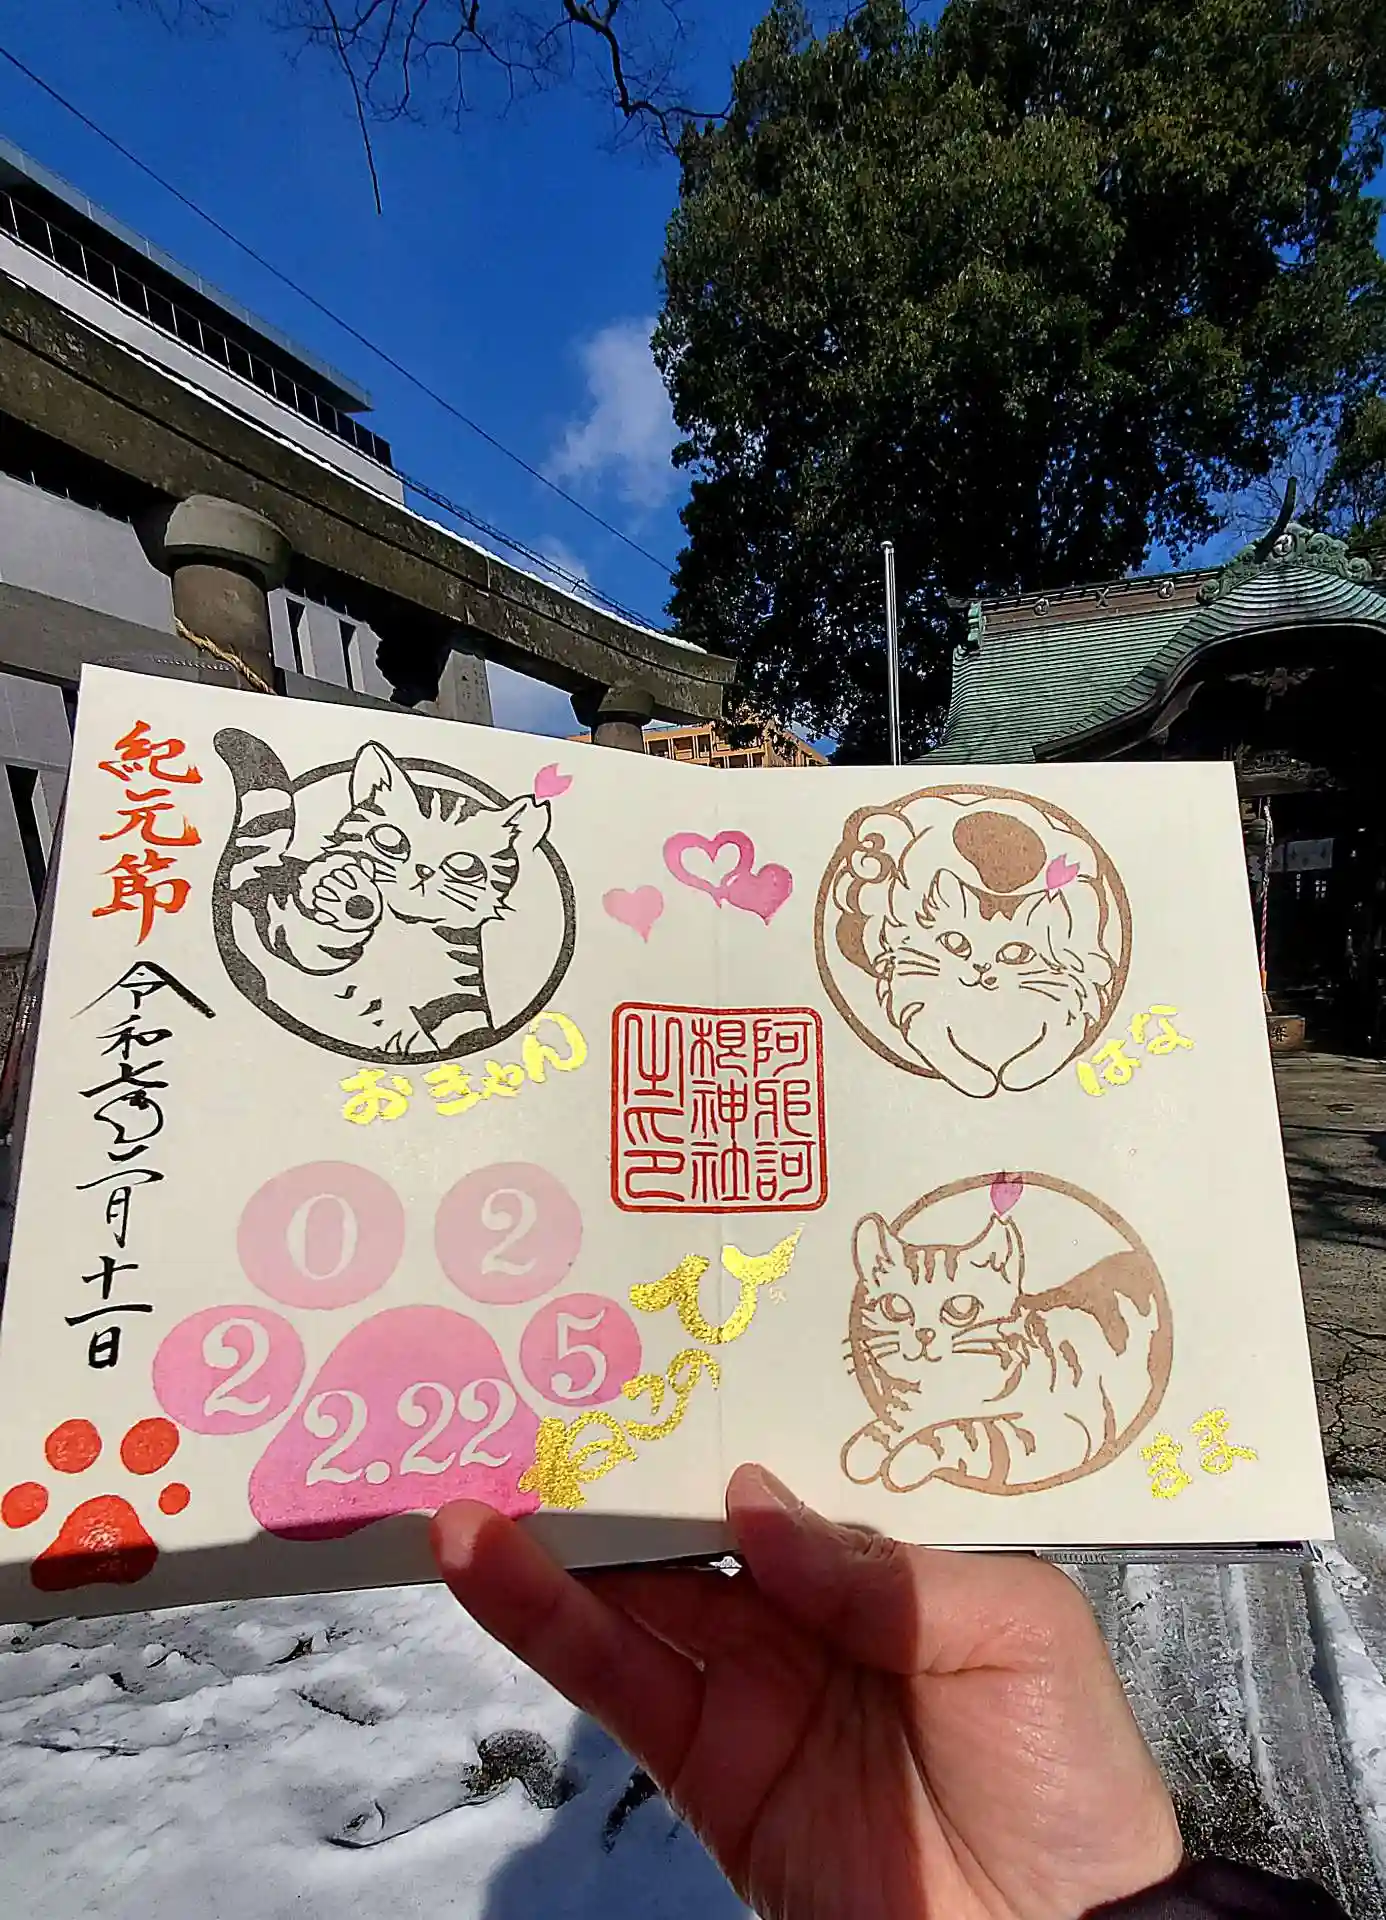 紀元節
令和七年二月十一日
おきゃん
はな
阿邪訶
根神社
之印
2025
2.22
ねこのひ
まま